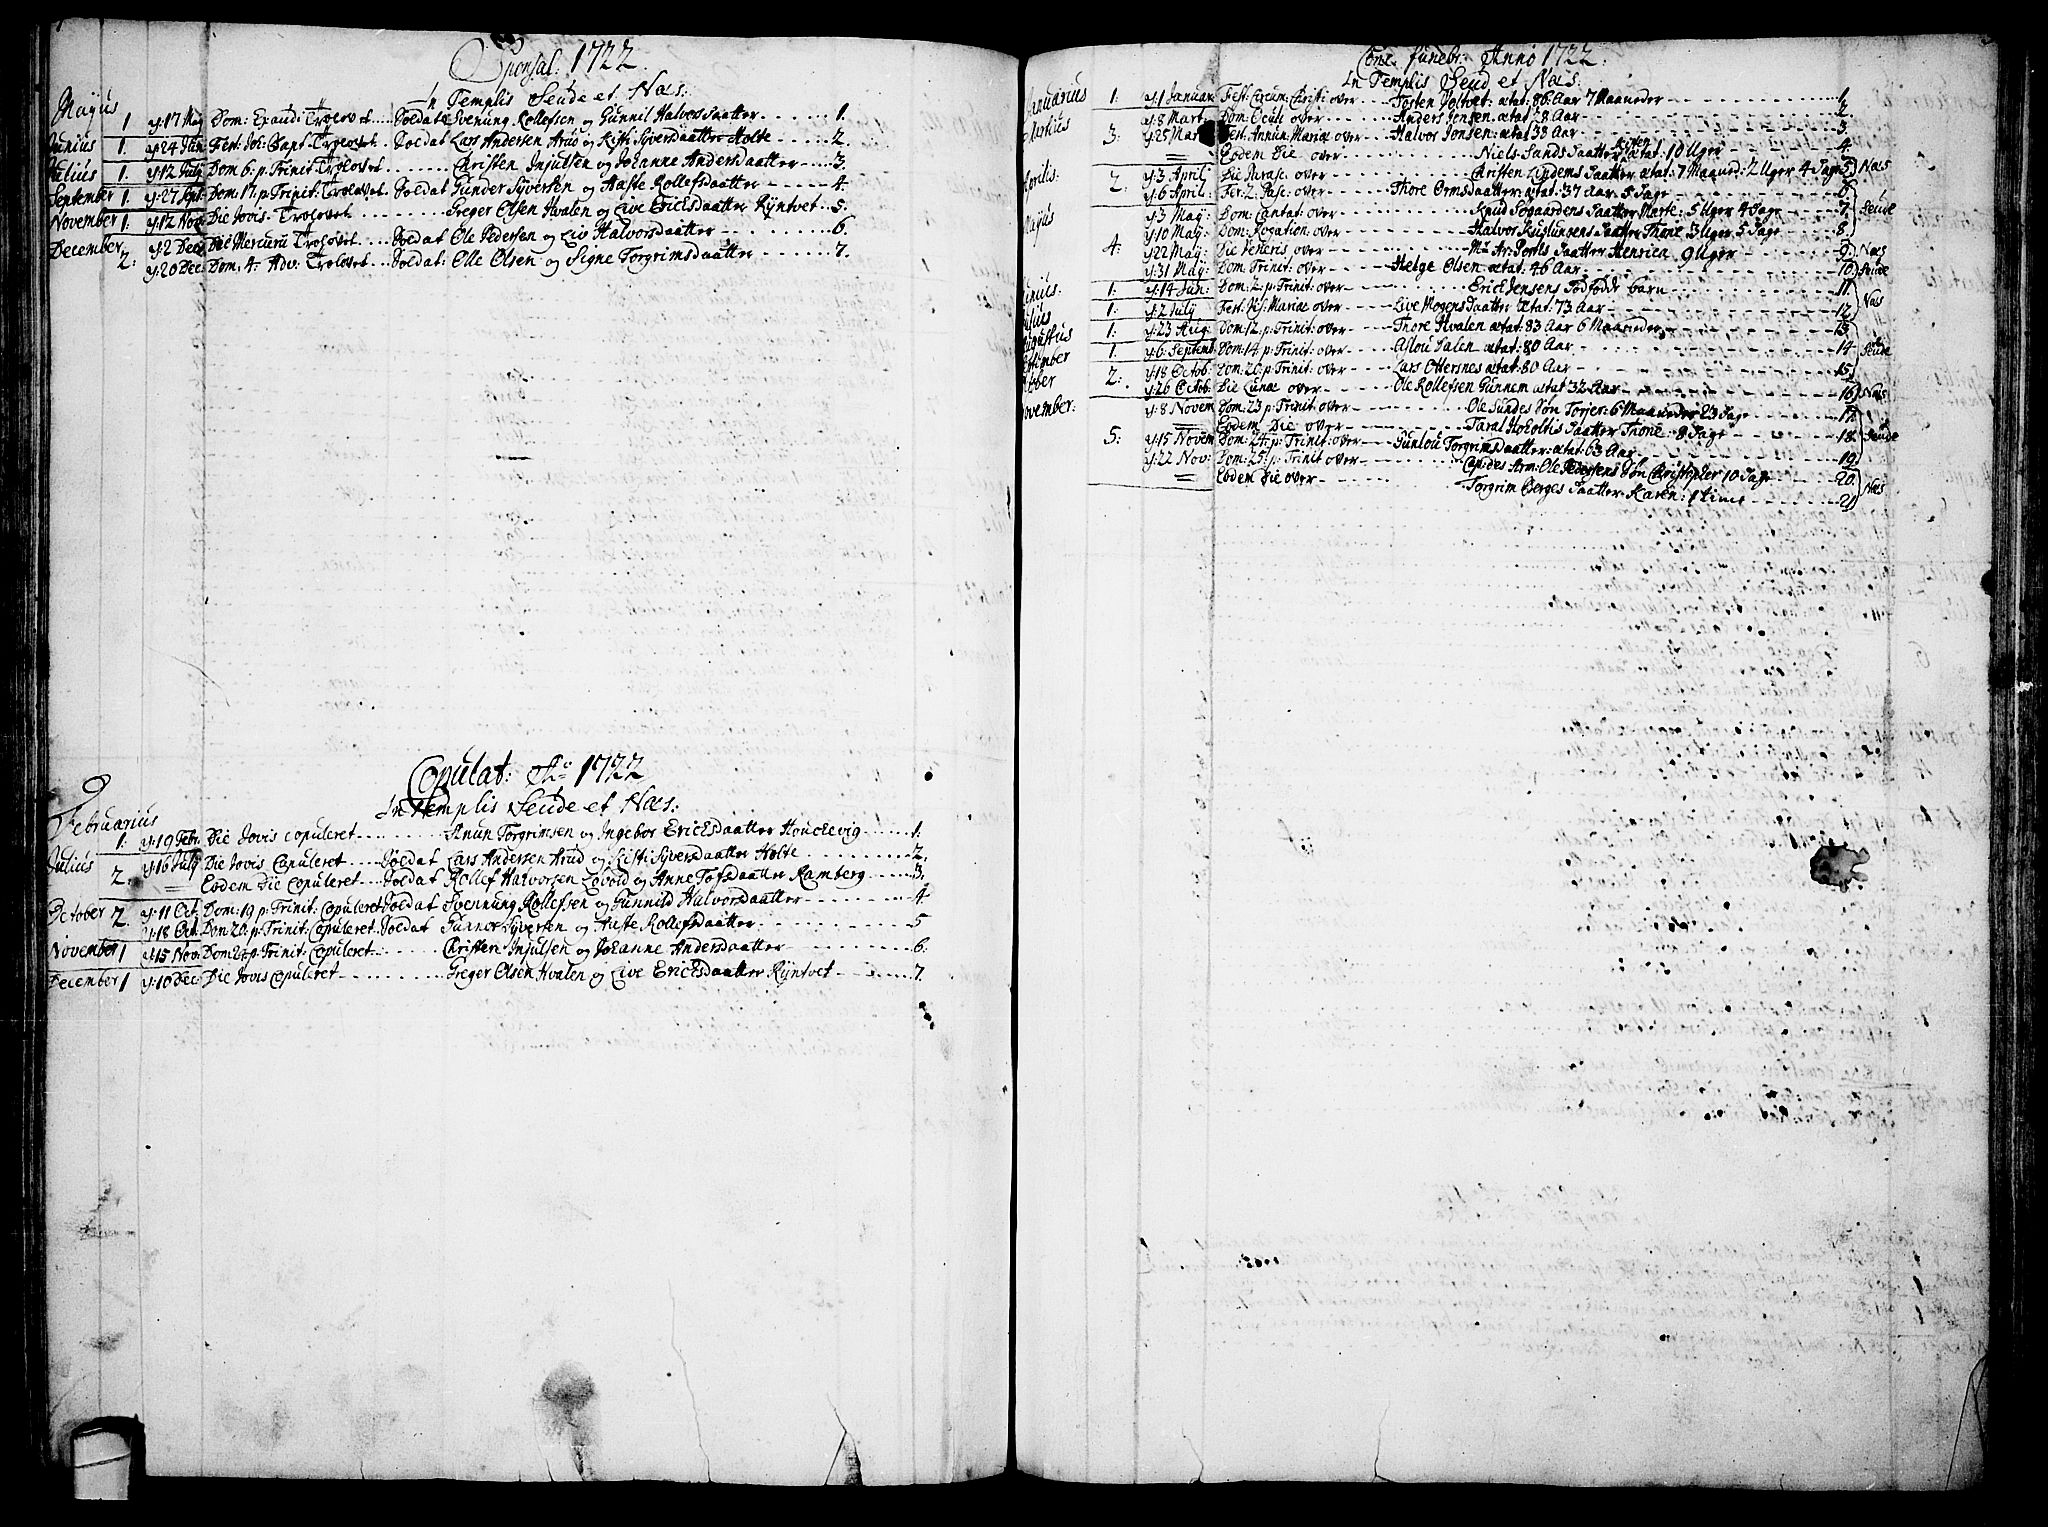 Sponsal: 1722.
In Templis Seude et Næs:
Mayus 1 d: 17 Maÿ Dom: Exaudi Trolovet Soldat Svenung Rollefsen og Gunnil Halvorsdaatter 1.
Junius 1. d: 24 Jun Fest: Joh: Bapt: Trolovet Soldat Lars Andersen Arud og Kisti Syversdaatter Holte 2.
Julius 1. d: 12 July Dom 6. p: Trinit Trolovet Christen Injulsen og Johanne Andersdaatter 3.
September 1 d: 27 Sept: Dom: 17. p: Trinit: Trolovet Soldat Gunder Syversen og Aaste Rollefsdaatter 4.
November 1: d: 12 Nov: Die Jovis Trolovet Greger Olsen Hvalen og Live Ericksdaatter Ryntvet 5.
December 2: d: 2 Dec: Die Mercurii Trolovet Soldat Ole Pedersen og Liv Halvorsdaatter 6.
d: 20 Dec: Dom: 4. Adv: Trolovet Soldat: Olle Olsen og Signe Torgrimsdaatter 7.
Copulat: Ao 1722
In Templis Seude et Næs:
Februarius
1: d: 19 Febr: Die Jovis copuleret Anun Torgrimsen og Ingebor Ericksdaatter Houckevig 1.
Julius 2. d: 16 July Die Jovis Copuleret Soldat Lars Andersen Arud og Kisti Syversdaatter Holte 2.
Eodem Die Copuleret Soldat Rollef Halvorsen Lovold og Anne Tofsdaatter Ramberg 3.
October 2. d: 11 Oct: Dom: 19 p: Trinit: Copuleret Soldat Svennung Rollefsen og Gunnild Halvorsdaatter 4
d: 18 Oct: Dom 20. p: Trinit: Copuleret Soldat Gunner Syversen og Aaste Rollefsdaatter 5
November 1 d: 15 Nov: Dom 24 p: Trinit: Copuleret Christen Injulsen og Johanne Andersdaatter 6.
December 1 d: 10 Dec: Die Jovis Copuleret Greger Olsen Hvalen og Live Ericksdaatter Ryntvet 7.
Conc. funebr: Anno 1722.
In Templis Seud et Næs:
Januarius 1. d: 1 Januar: Fest: Circum: Christi over Tosten Joltvet: ætat: 86: Aar 7 Maaneder 1
Martius 3. d: 8 Mart: Dom: Oculi over Anders Jensen ætat 28 Aar 2.
d: 25 Mart Fest: Annun: Mariæ over Halvor Jonsen: ætat: 38 Aar 3.
Eodem Die over Niels Sands Daatter ætat: 10 Uger 4
Aprilis: 2. d: 3 April Die Parasc: over Christen Lindems Daatter ætat: 7 Maaned: 2 Uger 4 Dage 5 Næs
d: 6 April: Fer: 2. Pasc: over Thore Ormsdaatter: ætat: 37 Aar 5 Dage 6.
Mayus 4. d: 3 May: Dom: Cantat: over Knud Sogaardens Daatter Marte: 5 Uger 4 Dage 7. Seude
d: 10 May: Dom: Rogation: over Halvor Daatter Thone 3 Uger: 5 Dage 8.
d: 22 May: Die Veneris over Daatter Henrica 9 Uger 9. Næs
d: 31 May: Dom: Trinit: over Helge Olsen ætat: 46 Aar 10 Seude
Junius. 1: d: 14 Jun: Dom: 2. p: Trinit: over Erick Jensens Dødfødde barn 11.
Julius 1: d: 2 July Fest: Vis: Mariæ over Live Mogensdaatter ætat: 73 Aar 12. Næs
Augustus 1. d: 23 Aug: Dom: 12. p: Trinit: over Thore Hvalen ætat: 83 Aar 6 Maaneder 13.
September 1. d: 6. Septemb: Dom: 14. p: Trinit: over Aslou Salen ætat: 80 Aar 14. Seude
October 2. d: 18 Octob: Dom: 20. p: Trinit: over Lars Ottersnes ætat: 80 Aar 15.
d: 26 Octob: Die Lunæ over Ole Rollefsen Gunnem ætat 32 Aar 16 Næs
November: d: 8 Novem: Dom: 23 p: Trinit: over Ole Sundes Søn Torjer: 6 Maaneder 23 Dage 17.
Eodem Die over Taral Daatter Thone 8 Dage 18. Seude
5: d: 15 Novem Dom: 24. p: Trinit: over Gunlou Torgrimsdaatter: ætat: 63 Aar 19
d: 22 Nov: Dom: 25. p: Trinit over Ole Pedersens Søn Christopher 10 Dage 20.
Eodem Die over Torgrim Berges Daatter Karen: 1 time 21 Næs